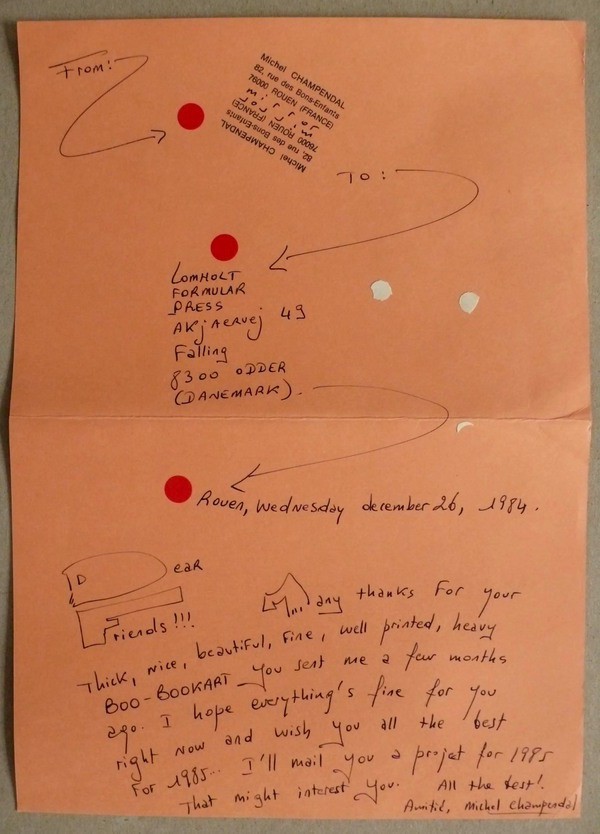 From:
Michel CHAMPENDAL
82, rue des Bons-Enfants
76000 ROUEN (FRANCE)
mirror
76000 ROUEN (FRANCE)
82, rue des Bons-Enfants
Michel CHAMPENDAL
To:
LOMHOLT
FORMULAR
PRESS
AKjAERVEj 49
Falling
8300 ODDER
(DANEMARK).
Rouen, Wednesday december 26, 1984.
DEAR
Friends!!!
Many thanks For your
Thick, nice, beautiful, Fine, well printed, heavy
BOO-BOOKART you sent me a few months
ago. I hope everything's fine for you
right now and wish you all the best
For 1985... I'll mail you a projet for 1985
That might interest you. All the best!
Amitié, Michel Champendal